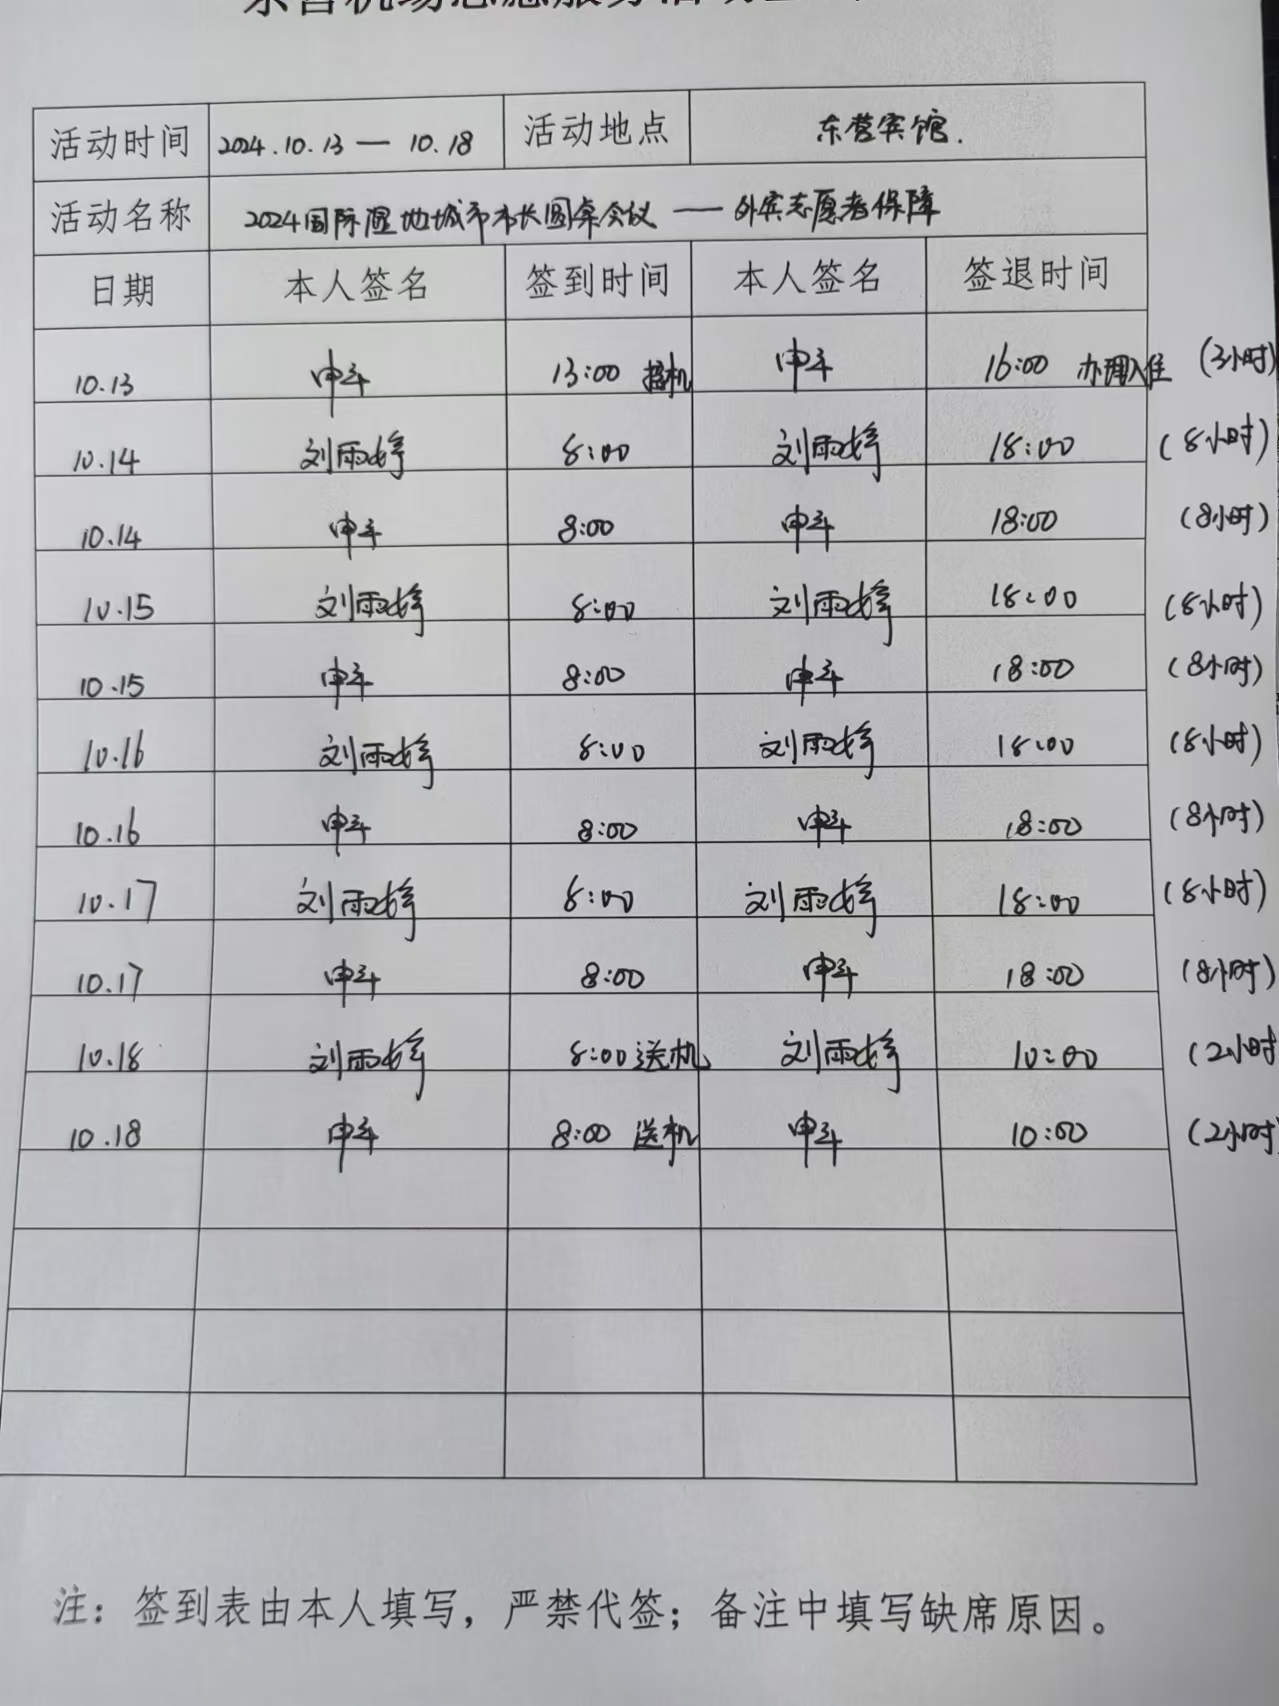 活动时间 2024.10.13 — 10.18 活动地点 东营宾馆.
活动名称 2024国际湿地城市市长圆桌会议 —— 外宾志愿者保障
日期 本人签名 签到时间 本人签名 签退时间
10.13 申斗 13:00 接机 申斗 16:00 办理入住 (3小时)
10.14 刘雨婷 8:00 刘雨婷 18:00 (8小时)
10.14 申斗 8:00 申斗 18:00 (8小时)
10.15 刘雨婷 8:00 刘雨婷 18:00 (8小时)
10.15 申斗 8:00 申斗 18:00 (8小时)
10.16 刘雨婷 8:00 刘雨婷 18:00 (8小时)
10.16 申斗 8:00 申斗 18:00 (8小时)
10.17 刘雨婷 8:00 刘雨婷 18:00 (8小时)
10.17 申斗 8:00 申斗 18:00 (8小时)
10.18 刘雨婷 8:00 送机 刘雨婷 10:00 (2小时
10.18 申斗 8:00 送机 申斗 10:00 (2小时
注：签到表由本人填写，严禁代签；备注中填写缺席原因。